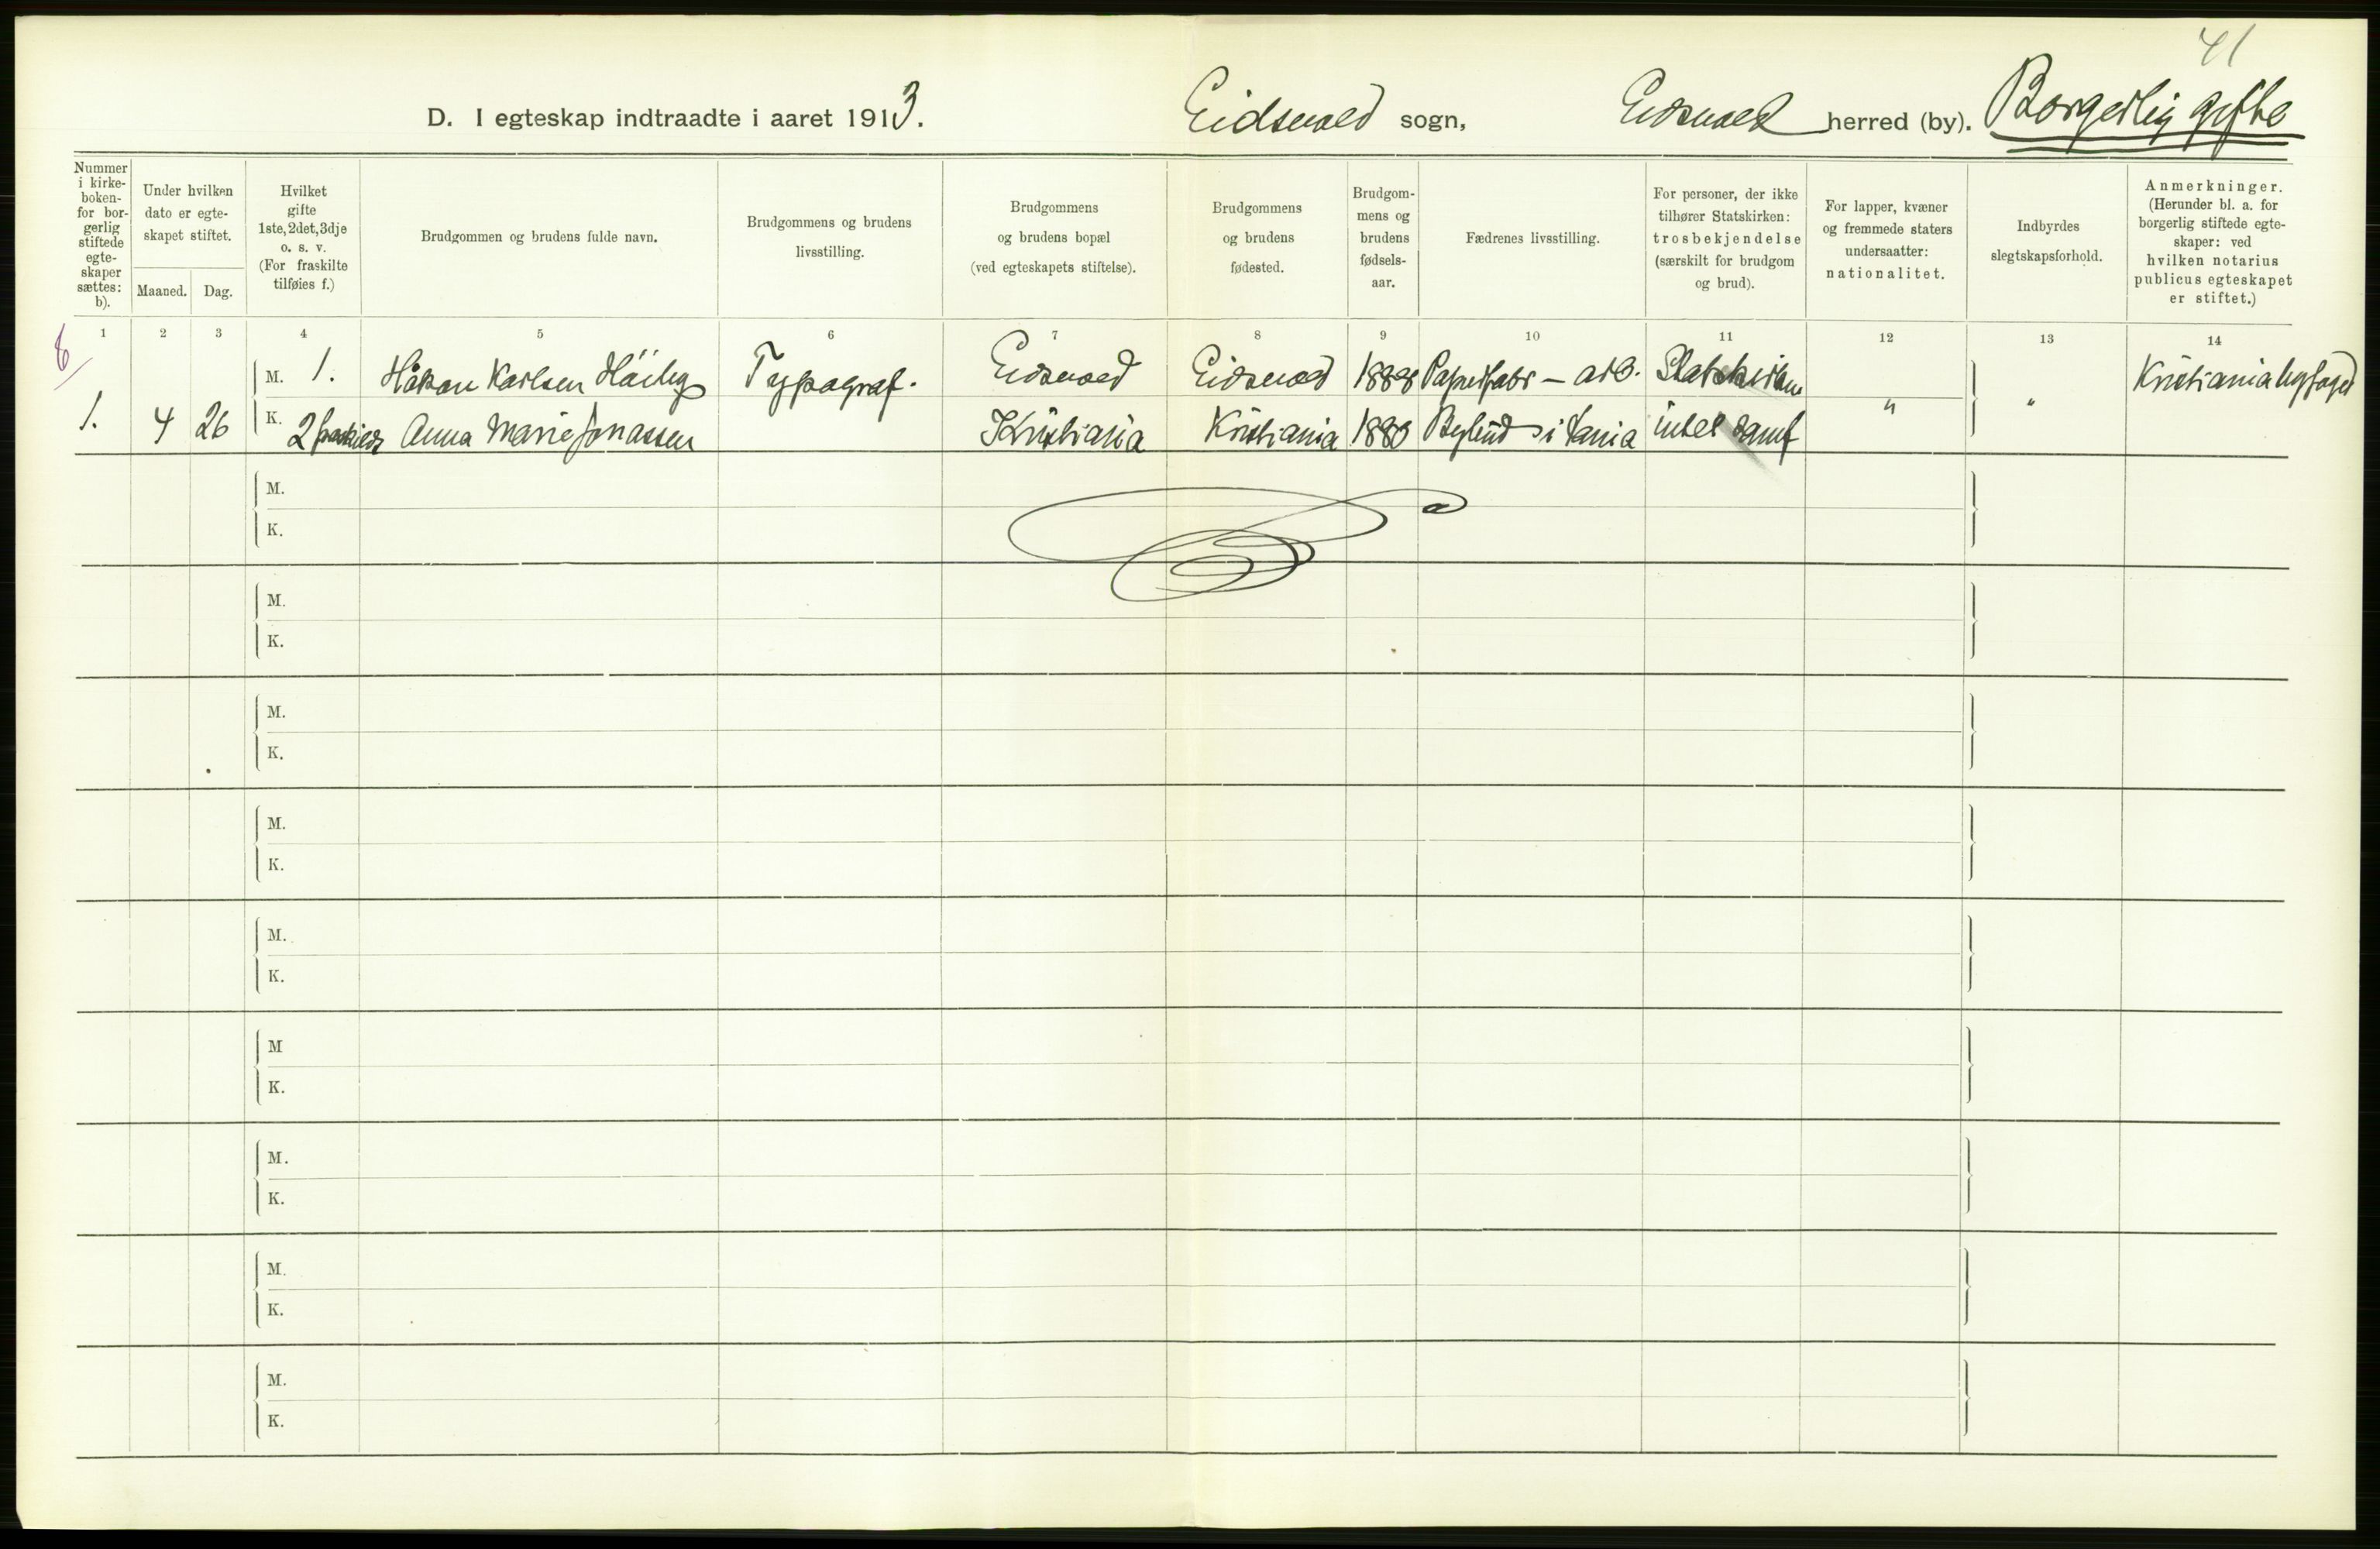 41
D. I egteskap indtraadte i aaret 1913. Eidsvold sogn, Eidsvold herred (by). Borgerlig gifte
Nummer i kirke- boken- for bor- gerlig stiftede egte- skaper sættes: b).
Under hvilken dato er egte- skapet stiftet.
Maaned. Dag.
Hvilket gifte 1ste, 2det, 3dje o. s. v. (For fraskilte tilføies f.)
Brudgommen og brudens fulde navn.
Brudgommens og brudens livsstilling.
Brudgommens og brudens bopæl (ved egteskapets stiftelse).
Brudgommens og brudens fødested.
Brudgom- mens og brudens fødsels- aar.
Fædrenes livsstilling.
For personer, der ikke tilhører Statskirken: trosbekjendelse (særskilt for brudgom og brud).
For lapper, kvæner og fremmede staters undersaatter: nationalitet.
Indbyrdes slegtskapsforhold.
Anmerkninger. (Herunder bl. a. for borgerlig stiftede egte- skaper: ved hvilken notarius publicus egteskapet er stiftet.)
1 2 3 4 5 6 7 8 9 10 11 12 13 14
6
M. 1. Håkon Karlsen Typograf. Eidsvold Eidsvold 1888 Papirfabr - arb. Statskirken Kristiania byfoged
1. 4 26 K. 2 Anna Marie Jonassen Kristiania Kristiania 1880 i intet samf " "
M.
K.
M.
K.
M.
K.
M.
K.
M.
K.
M
K.
M.
K.
M.
K.
M.
K.